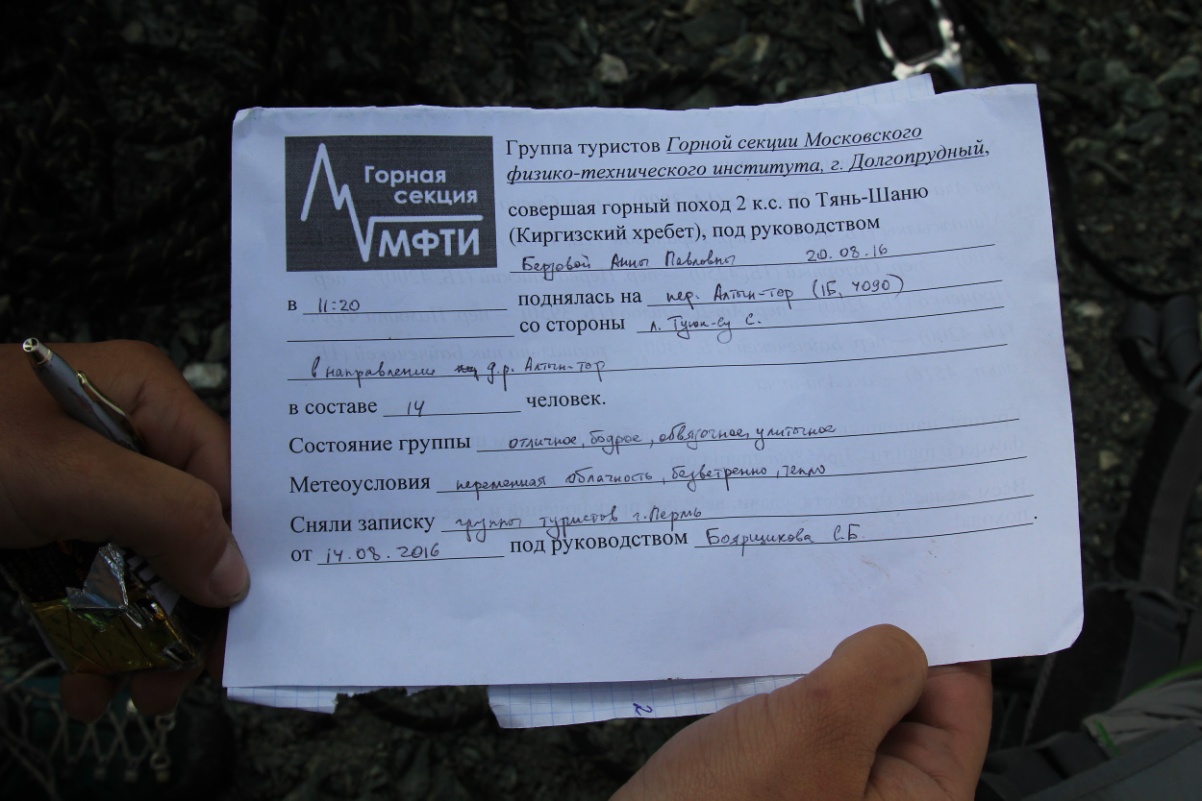 Горная
секция
МФТИ
Группа туристов Горной секции Московского
физико-технического института, г. Долгопрудный,
совершая горный поход 2 к.с. по Тянь-Шаню
(Киргизский хребет), под руководством
Берзовой Анны Павловны 20.08.16
в 11:20 поднялась на пер. Алтын-тор (1Б, 4090)
со стороны л. Туюк-Су С.
в направлении д.р. Алтын-тор
в составе 14 человек.
Состояние группы отличное, бодрое, обвязочное, улиточное
Метеоусловия переменная облачность, безветренно, тепло
Сняли записку группы туристов г. Пермь
от 14.08.2016 под руководством Боярщикова С.Б.
2